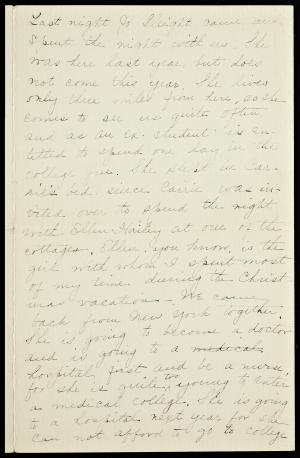 Last night Jo Sleight came and
spent the night with us. She
was here last year, but does
not come this year. She lives
only three miles from here, so she
comes to see us quite often
and as an ex-student is en-
titled to spend one day in the
college free. She slept in Car-
rie's bed since Carrie was in-
vited over to spend the night
with Ellen Hailey at one of the
cottages. Ellen, you know, is the
girl with whom I spent most
of my time during the Christ-
mas vacation - We came
back from New York together.
She is going to become a doctor
and is going to a medical
hospital first and be a nurse,
for she is quite too young to enter
a medical college. She is going
to a hospital next year for she
can not afford to go to college